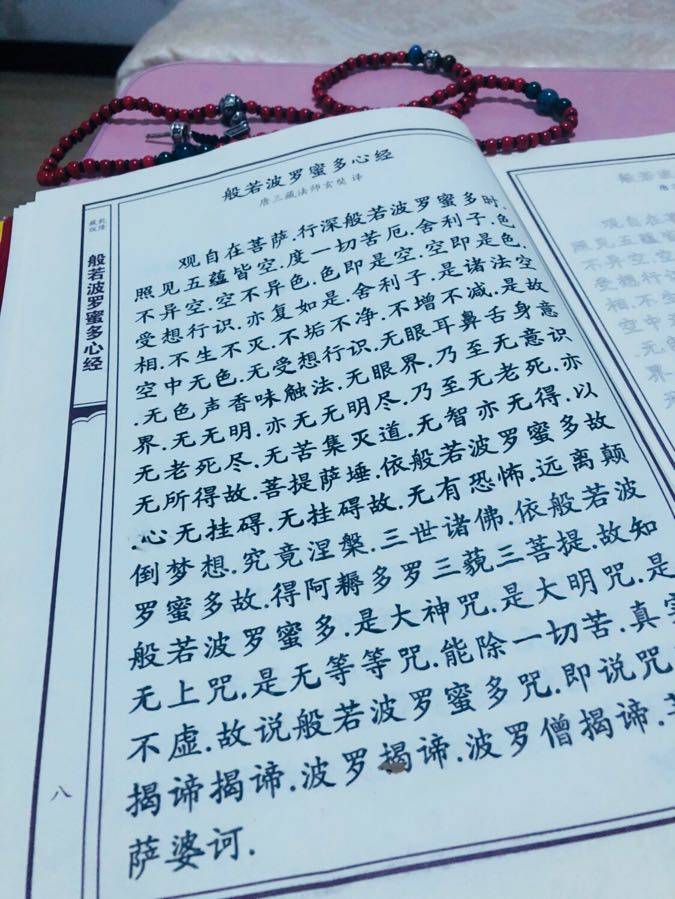 般若波罗蜜多心经
唐三藏法师玄奘 译
观自在菩萨.行深般若波罗蜜多时.
照见五蕴皆空.度一切苦厄.舍利子.色
不异空.空不异色.色即是空.空即是色.
受想行识.亦复如是.舍利子.是诸法空
相.不生不灭.不垢不净.不增不减.是故
空中无色.无受想行识.无眼耳鼻舌身意
.无色声香味触法.无眼界.乃至无意识
界.无无明.亦无无明尽.乃至无老死.亦
无老死尽.无苦集灭道.无智亦无得.以
无所得故.菩提萨埵.依般若波罗蜜多故
.心无挂碍.无挂碍故.无有恐怖.远离颠
倒梦想.究竟涅槃.三世诸佛.依般若波
罗蜜多故.得阿耨多罗三藐三菩提.故知
般若波罗蜜多.是大神咒.是大明咒.是
无上咒.是无等等咒.能除一切苦.真实
不虚.故说般若波罗蜜多咒.即说咒
揭谛揭谛.波罗揭谛.波罗僧揭谛.
萨婆诃.
乾隆
藏版
般若波罗蜜多心经
八
般若波
观自在菩萨
照见五蕴皆
不异空.空
受想行
相.不生
空中无